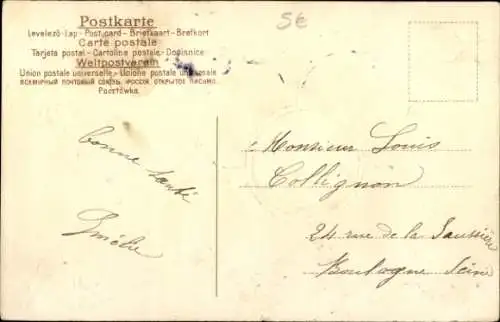 Postkarte
Levelező-Lap - Post card - Briefkaart - Brefkort
Carte postale
Tarjeta postal - Cartolina postale - Dopisnice
Weltpostverein
Union postale universelle - Unione postale universale
ВСЕМІРНЫЙ ПОЧТОВЫЙ СОЮЗЪ. РОССІЯ. ОТКРЫТОЕ ПИСЬМО.
Pocztówka.
5€
bonne santé
Amélie
Monsieur Louis
Collignon
24 rue de la Saussière
Boulogne Seine